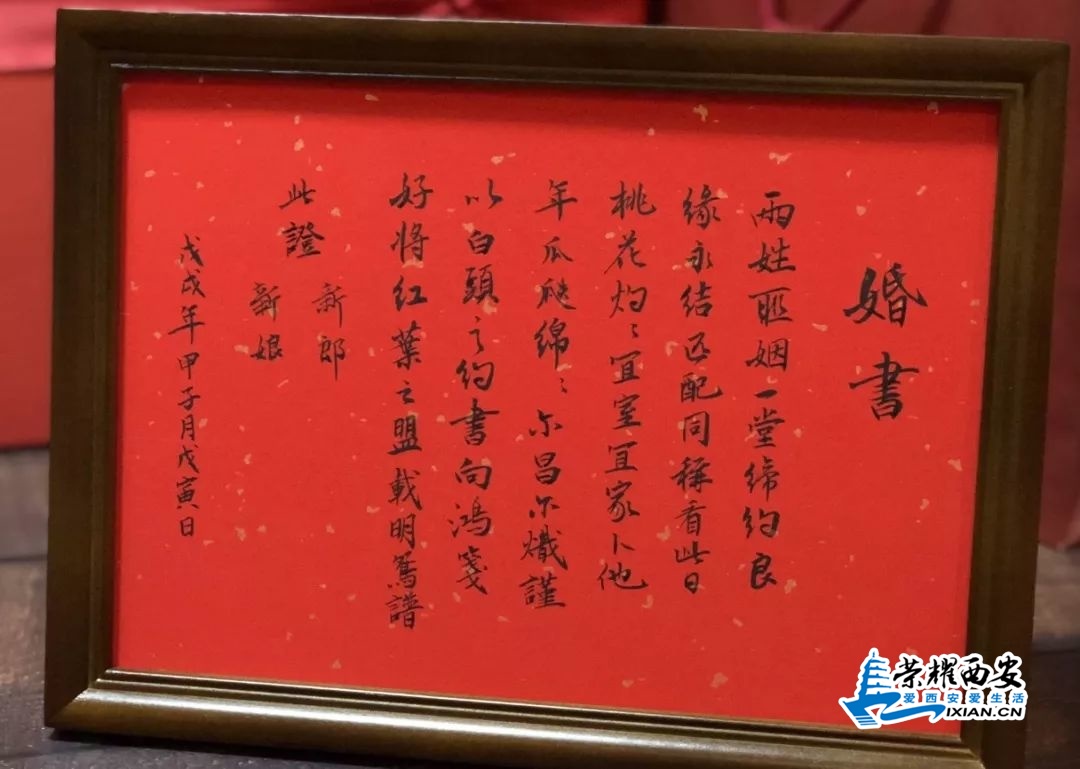 婚書
兩姓匪姻一堂締約良
緣永結匹配同稱看此日
桃花灼〻宜室宜家卜他
年瓜瓞綿〻尔昌尔熾謹
以白頭之約書向鴻箋
好將紅葉之盟載明鴛譜
此證
新郎
新娘
戊戌年甲子月戊寅日
荣耀西安
爱西安爱生活
IXIAN.CN